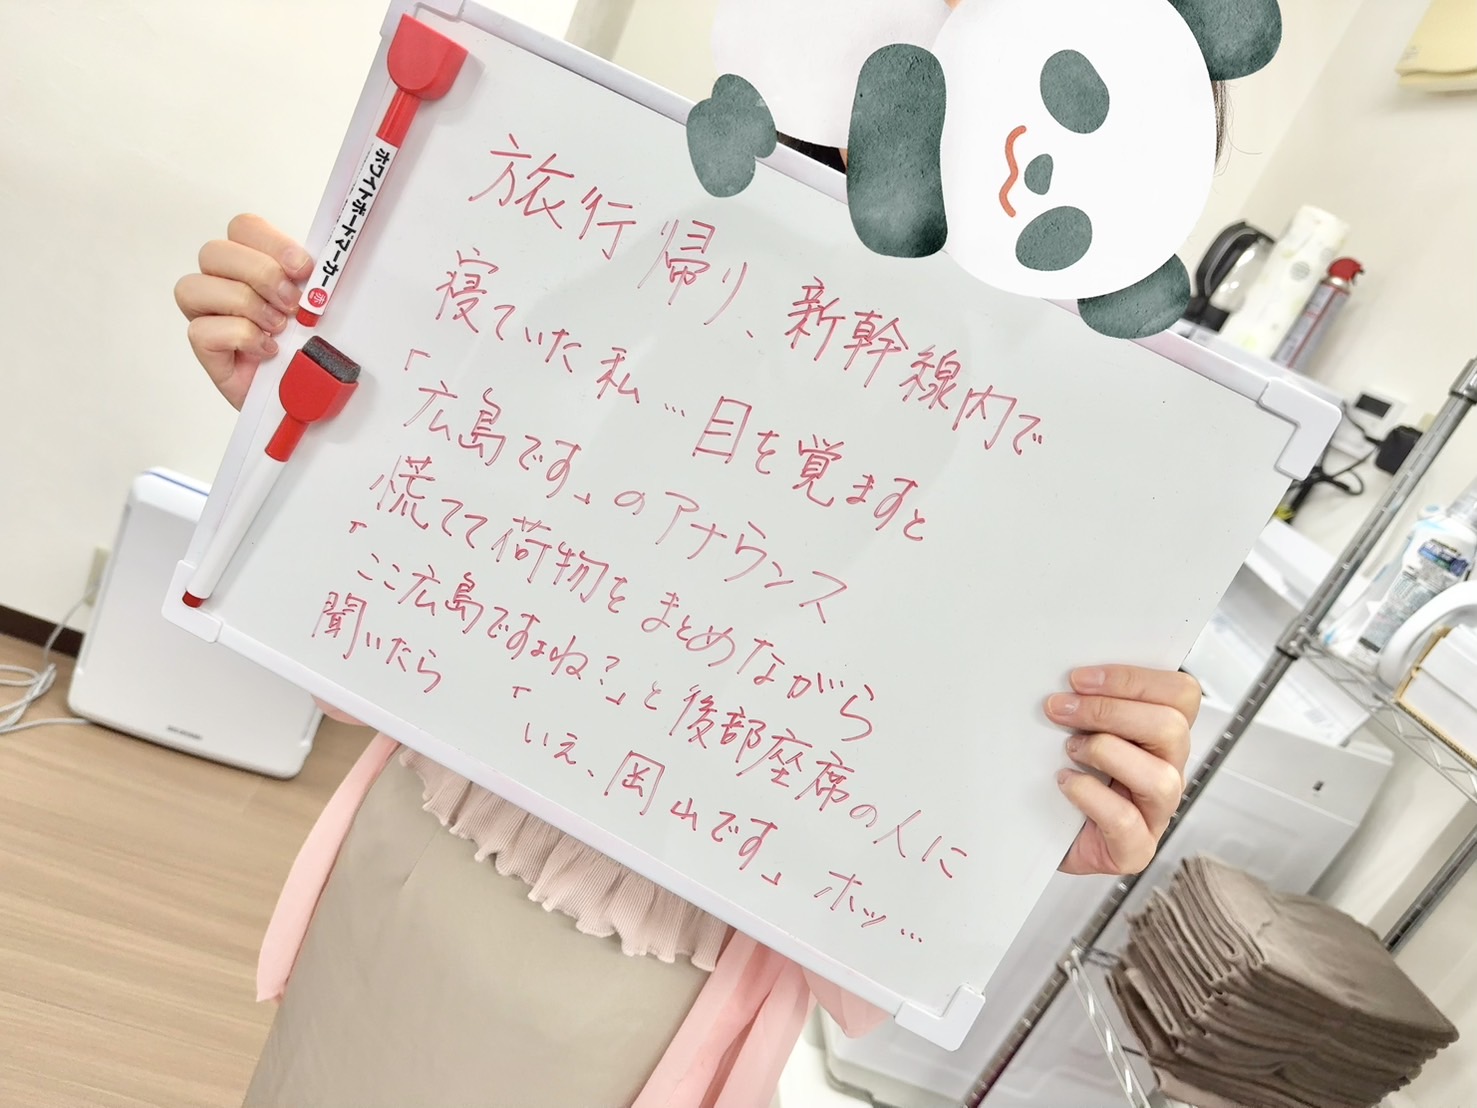 旅行帰り、新幹線内で
寝ていた私…目を覚ますと
「広島です」のアナウンス
慌てて荷物をまとめながら
「ここ広島ですよね?」と後部座席の人に
聞いたら 「いえ、岡山です」ホッ…
ホワイトボードマーカー